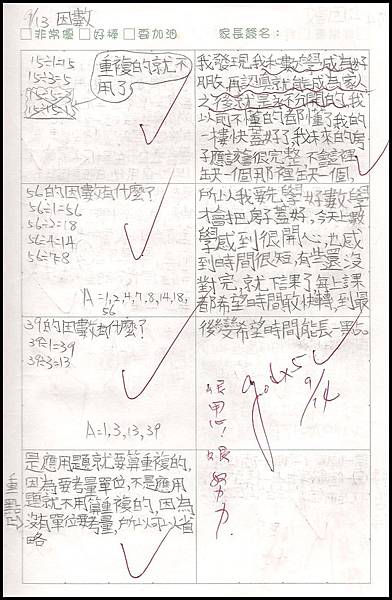 9/13 因數
□非常優 □好棒 □要加油
家長簽名：
15÷1=15
15÷3=5
重複的就不
用了
56的因數有什麼？
56÷1=56
56÷2=18
56÷4=14
56÷7=8
A=1,2,4,7,8,14,18,
56
39的因數有什麼？
39÷1=39
39÷3=13
A=1,3,13,39
重點
是應用題就要算重複的,
因為要考量單位,不是應用
題就不用算重複的,因為
沒有單位要考量,所以可以省
略
我發現我和數學成為好
朋友,再認真就能成為家人
之後就是分不開的了,我
以前不懂的都懂了,我的
一樓快蓋好了,我未來的房
子應該會很完整,不會這裡
缺一個那裡缺一個,
所以我要先學好數學
才會把房子蓋好,今天上數
學感到很開心,也感
到時間很短,有些還沒
對完,就下課了,每上課
都希望時間敢快轉,到最
後變希望時間能長一點。
good x5
9/14
很用心！很努力.